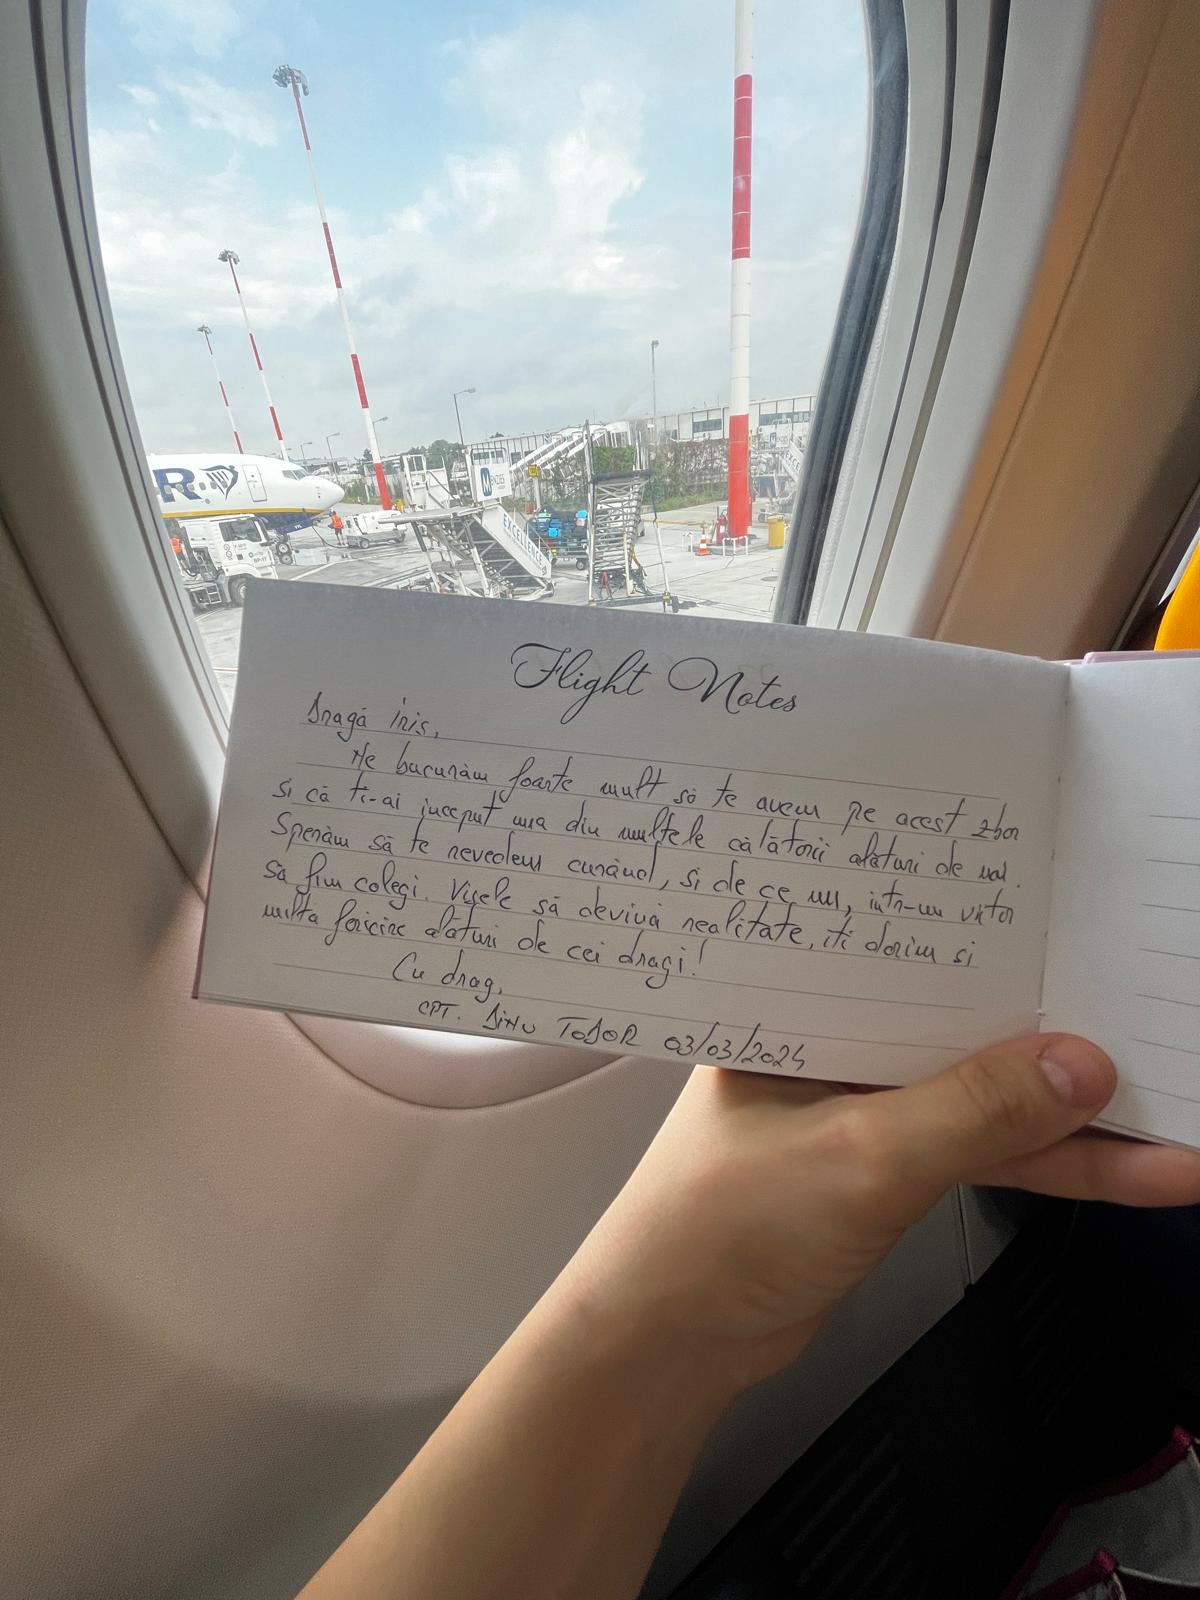 R
MENZIES
EXCELLENCE
Flight Notes
Dragă Iris,
Ne bucurăm foarte mult să te avem pe acest zbor
și că ți-ai început una din multele călătorii alături de noi.
Sperăm să te revedem curând, și de ce nu, intr-un viitor
să fim colegi. Visele să devină realitate, iți dorim si
multa fericire alături de cei dragi!
Cu drag,
CPT. DINU TODOR 03/03/2024